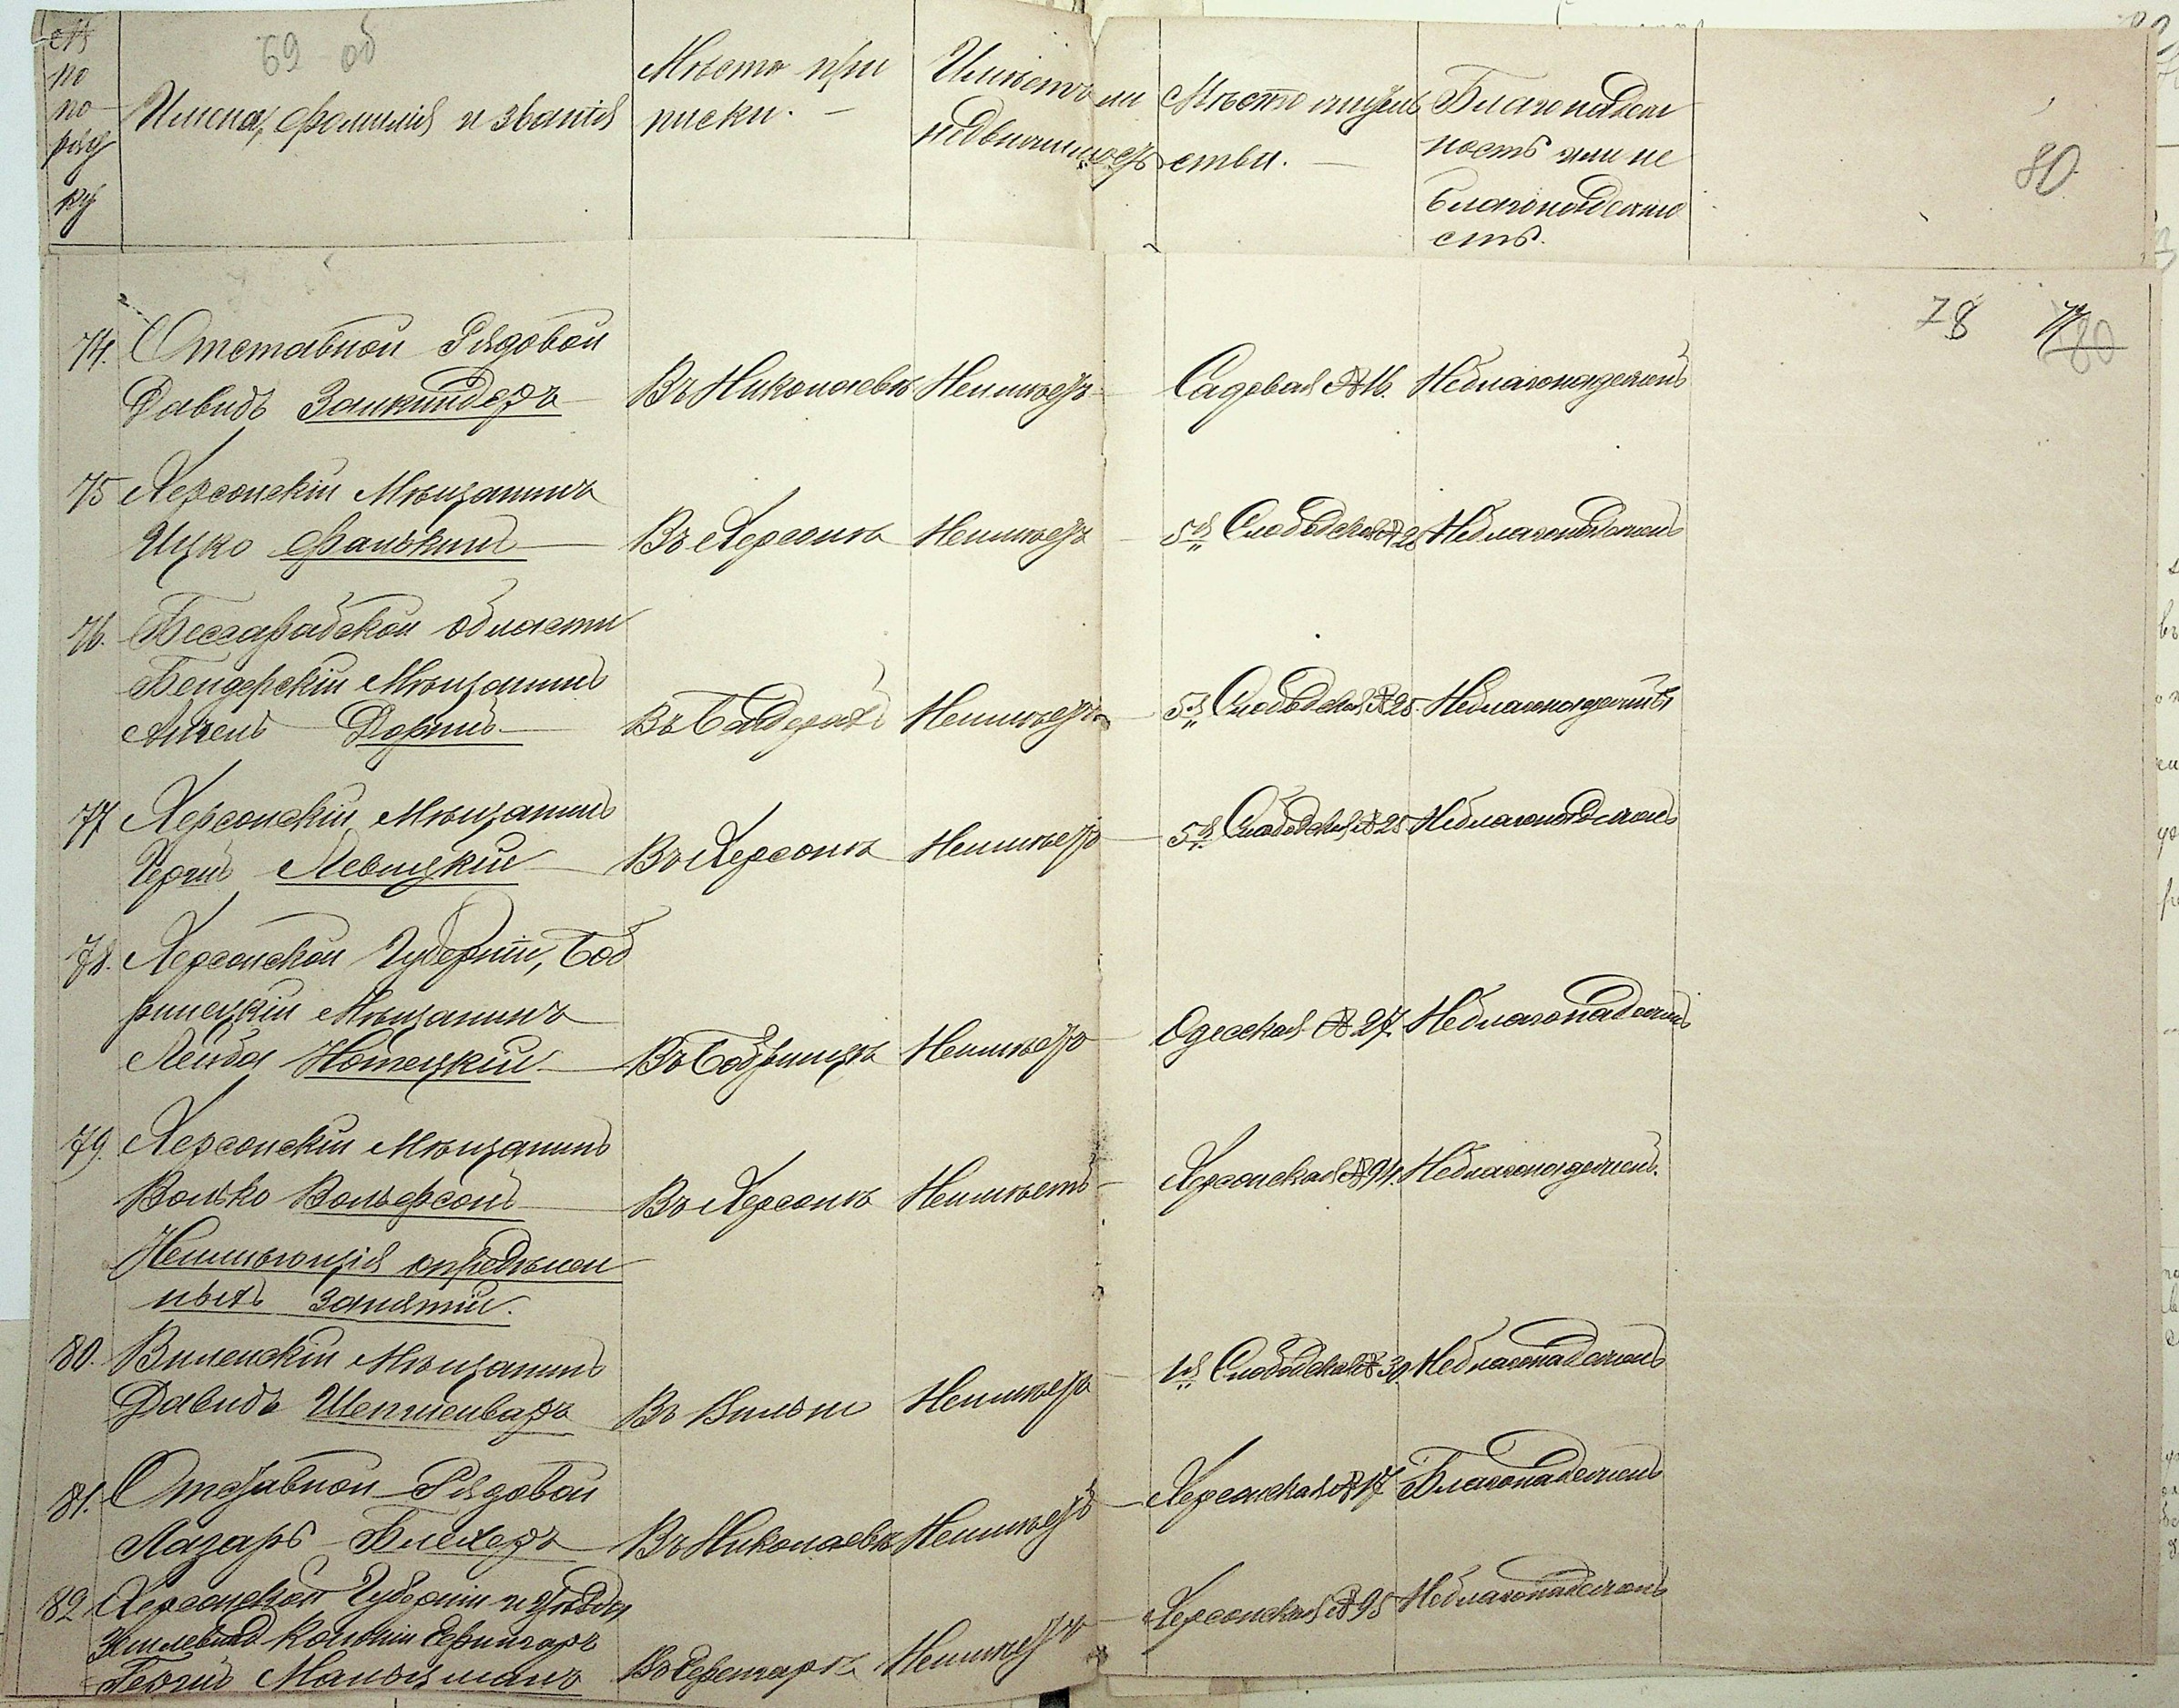 69 об
№ по поряд ку
Имена, фамилія и званія
Мѣсто при
писки. —
Имѣетъ ли
недвижимость
Мѣсто жител
ства. —
Благонадеж
ность или не
благонадежно
сть.
80
78
80
74. Отставной Рядовой
Давидъ Залкиндеръ — Въ Николаевѣ Неимѣетъ — Садовая №16. Неблагонадеженъ
75 Херсонскій Мѣщанинъ
Ицко Фалькинъ — Въ Херсонѣ Неимѣетъ — 5я Слободская №25 Неблагонадеженъ
76. Бессарабской области
Бендерскій Мѣщанинъ
Дорнинъ — Въ Бендерахъ Неимѣетъ — 5я Слободская №25. Неблагонадеженъ
77 Херсонскій Мѣщанинъ
Левицкій — Въ Херсонѣ Неимѣетъ — 5я Слободская №25 Неблагонадеженъ
78. Херсонской Губерніи, Боб
ринецкій Мѣщанинъ
Лейба Нотецкій — Въ Бобринцѣ Неимѣетъ — Одесская №27. Неблагонадеженъ
79. Херсонскій Мѣщанинъ
Волько Вольфсонъ — Въ Херсонѣ Неимѣетъ — Херсонская №94. Неблагонадеженъ.
Неимѣющія опредѣлен
ныхъ занятій.
80. Виленскій Мѣщанинъ
Давидъ Шепшенваръ Въ Вильни Неимѣетъ — 1я Слободская №30. Неблагонадеженъ
81. Отставной Рядовой
Лазарь Блехеръ Въ Николаевѣ Неимѣетъ — Херсонская №17 Благонадеженъ
82 Херсонской Губерніи и Уѣзда
колоніи
Мальцманъ Неимѣетъ — Херсонская №95 Неблагонадеженъ